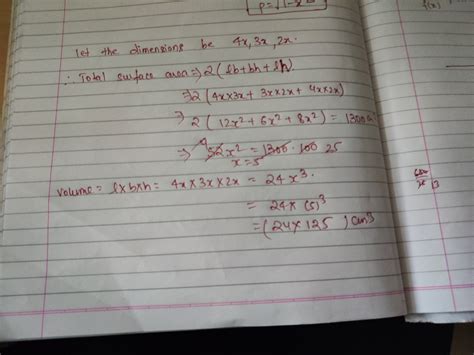 p = √1-
f(x)
let the dimensions be 4x, 3x, 2x.
∴ Total surface area ⇒ 2(lb+bh+lh)
⇒ 2(4x×3x + 3x×2x + 4x×2x)
⇒ 2(12x²+6x²+8x²) = 1300
⇒ 52x² = 1300 100 25
x=5
Volume = l×b×h = 4x×3x×2x = 24x³
= 24×(5)³
= (24×125) cm³